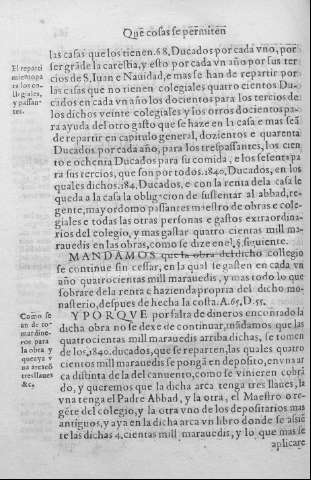 Que cosas se permiten
las casas que los tienen. 68, Ducados por cada vno, por
ser grãde la carestia, y esto por cada vn año por sus ter
cios de S, Iuan e Nauidad, e mas se han de repartir por
las casas que no tienen colegiales quatro cientos Du-
cados en cada vn año los docientos para los tercios de
los dichos veinte colegiales y los otros docientos pa-
ra ayuda del otro gasto que se haze en la casa e mas seã
de repartir en capitulo general, dozientos e quarenta
Ducados por cada año, para los trespassantes, los cien
to e ochenta Ducados para su comida, e los sesenta pa
ra sus tercios, que son por todos. 1840, Ducados, en los
quales dichos. 184, Ducados, e con la renta de la casa se
queda a la casa la obligacion de sustentar al abbad, re-
gente, mayordomo passantes miestro de obras e cole-
giales e todas las otras personas e gastos extraordina-
rios del colegio, y mas gastar quatro cientas mill ma-
rauedis en las obras, como se dize en el, §. siguiente.
MANDAMOS que la obra del dicho collegio
se continue sin cessar, en la qual se gasten en cada vn
año quatrocientas mill marauedis, y mas todo lo que
sobrare de la renta e hazienda propria del dicho mo-
nasterio, despues de hecha la costa. A. 65, D. 55.
Y PORQVE por falta de dineros encontado la
dicha obra no se dexe de continuar, mãdamos que las
quatrocientas mill marauedis arriba dichas, se tomen
de los, 1840. ducados, que se reparten, las quales quatro
cientos mill marauedis se ponga en deposito, en vna ar
ca distinta de la del camuento, como se vinieren cobrã
do, y queremos que la dicha arca tenga tres llaues, la
vna tenga el Padre Abbad, y la otra, el Maestro o re-
gēte del colegio, y la otra vno de los depositarios mas
antiguos, y aya en la dicha arca vn libro donde se assiē
te las dichas 4, cientas mill marauedis, y lo que mas se
aplicare
El reparti
mientopa
ra los co-
llegiales,
y passan-
tes.
Como se
an de to-
mar dine-
ros para
la obra y
que aya v
na arca cõ
tres llaues
&c,